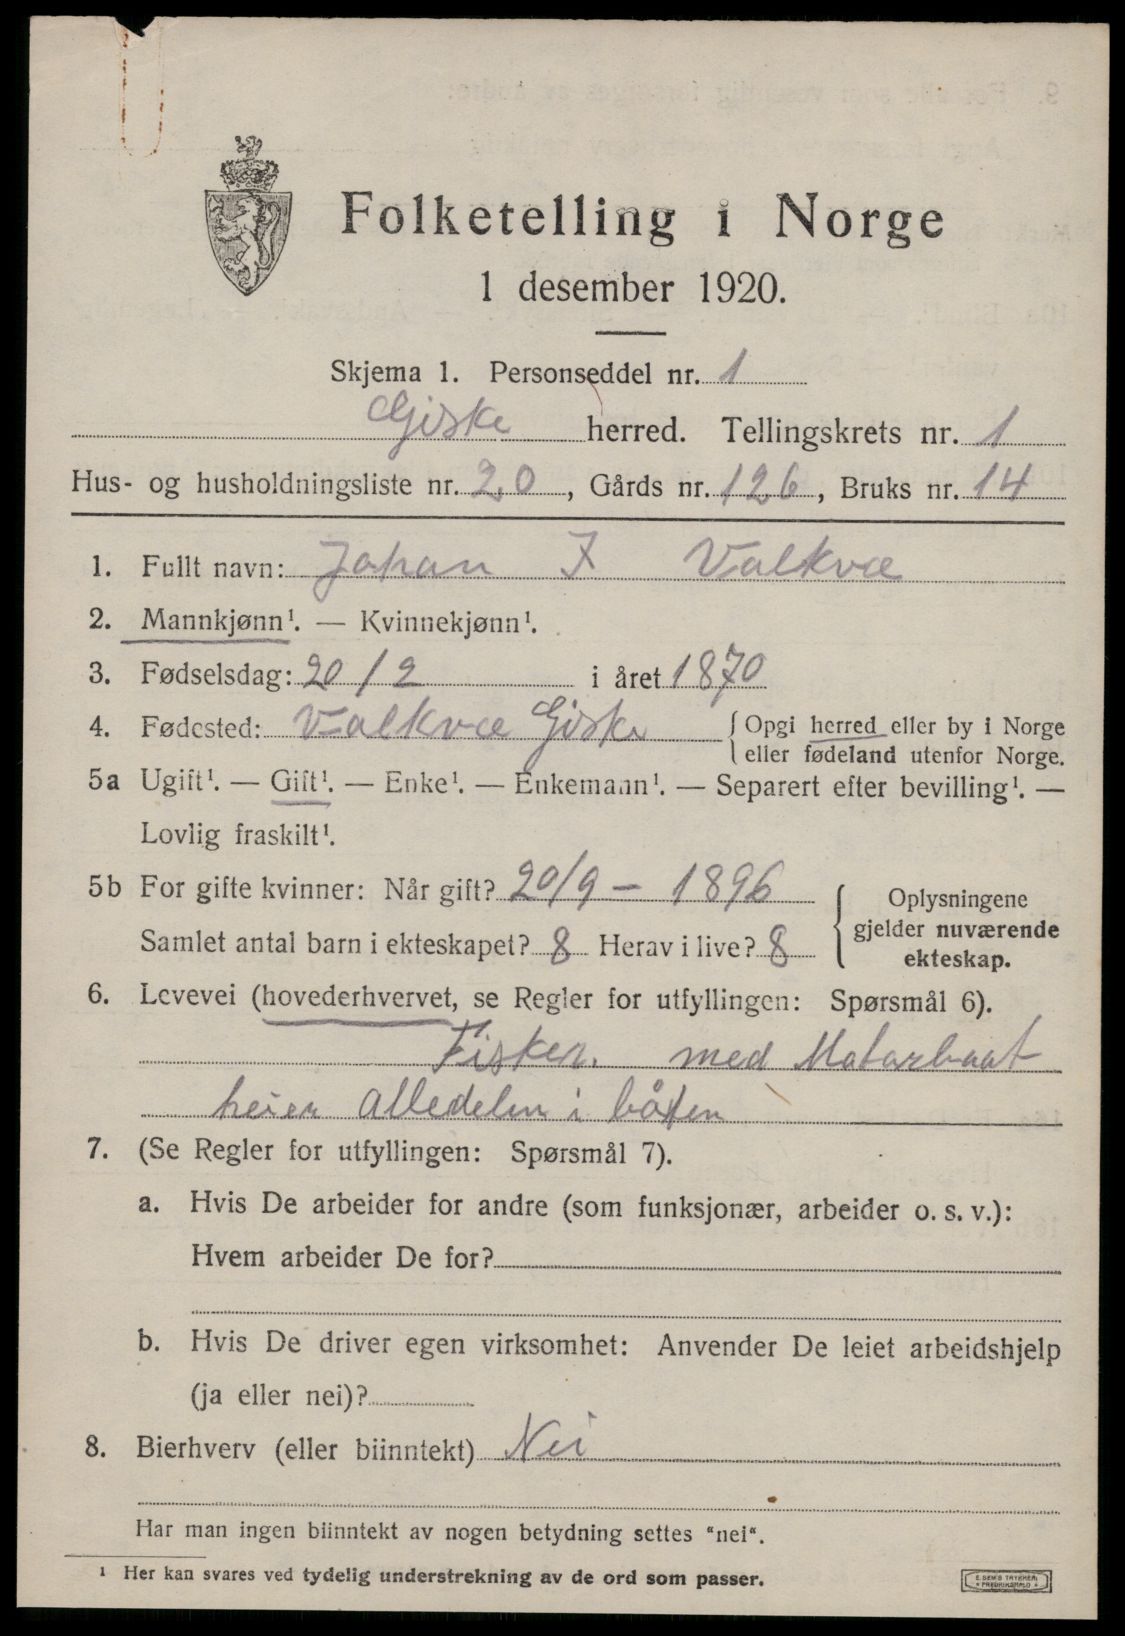 Folketelling i Norge
1 desember 1920.
Skjema 1. Personseddel nr. 1
Giske herred. Tellingskrets nr. 1
Hus- og husholdningsliste nr. 20, Gårds nr. 126, Bruks nr. 14
1. Fullt navn: Johan J Valkvæ
2. Mannkjønn¹. — Kvinnekjønn¹.
3. Fødselsdag: 20/2 i året 1870
4. Fødested: Valkvæ Giske { Opgi herred eller by i Norge
eller fødeland utenfor Norge.
5a Ugift¹. — Gift¹. — Enke¹. — Enkemann¹. — Separert efter bevilling¹. —
Lovlig fraskilt¹.
5b For gifte kvinner: Når gift? 20/9 – 1896
Samlet antal barn i ekteskapet? 8 Herav i live? 8
{ Oplysningene
gjelder nuværende
ekteskap.
6. Levevei (hovederhvervet, se Regler for utfyllingen: Spørsmål 6).
Fisker. med Motorbaat
heier alledelen i båten
7. (Se Regler for utfyllingen: Spørsmål 7).
a. Hvis De arbeider for andre (som funksjonær, arbeider o. s. v.):
Hvem arbeider De for?
b. Hvis De driver egen virksomhet: Anvender De leiet arbeidshjelp
(ja eller nei)?
8. Bierhverv (eller biinntekt) Nei
Har man ingen biinntekt av nogen betydning settes "nei".
¹ Her kan svares ved tydelig understrekning av de ord som passer.
E. SEM'S TRYKKERI
FREDRIKSHALD